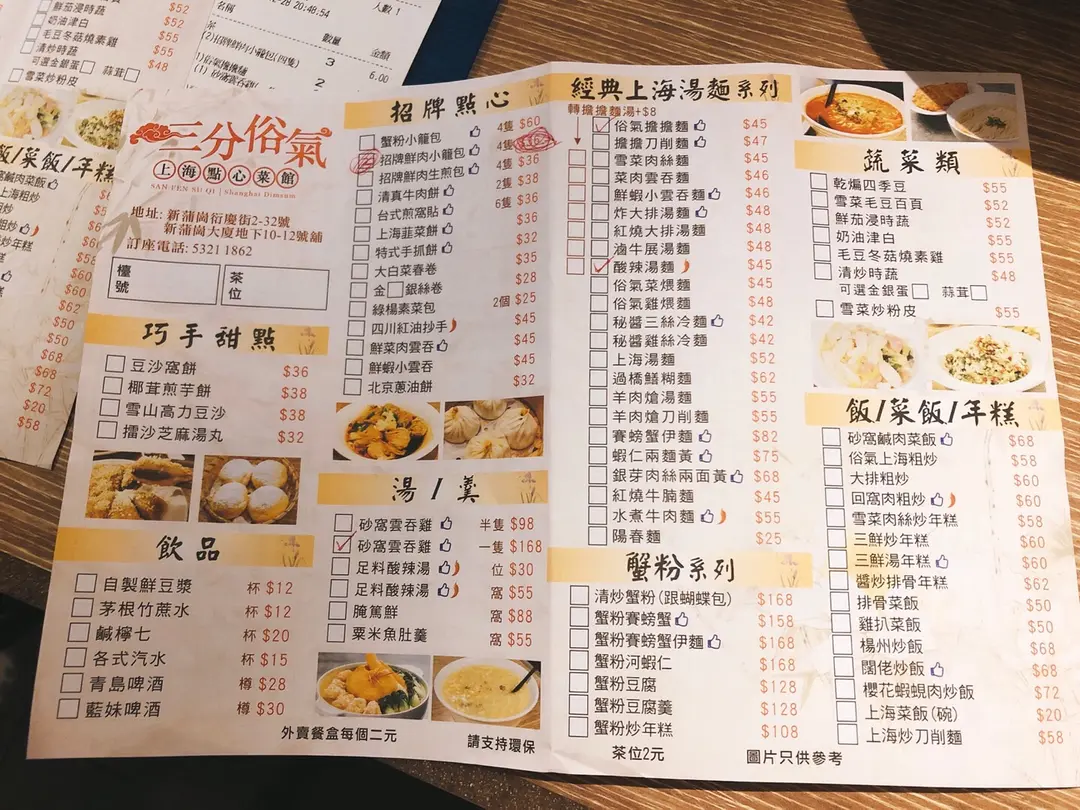 鮮茄浸時蔬 $52
奶油津白 $52
毛豆冬菇燒素雞 $55
清炒時蔬 $55
可選金銀蛋 蒜茸 $48
雪菜炒粉皮
20:48:54
人數 1
名稱
數量
金額
茶
3
6.00
2
三分俗氣
上海點心菜館
SAN FEN SU QI | Shanghai Dimsum
地址: 新蒲崗衍慶街2-32號
新蒲崗大廈地下10-12號舖
訂座電話: 5321 1862
檯號
茶位
巧手甜點
豆沙窩餅 $36
椰茸煎芋餅 $38
雪山高力豆沙 $38
擂沙芝麻湯丸 $32
飲品
自製鮮豆漿 杯 $12
茅根竹蔗水 杯 $12
鹹檸七 杯 $20
各式汽水 杯 $15
青島啤酒 樽 $28
藍妹啤酒 樽 $30
外賣餐盒每個二元
招牌點心
蟹粉小籠包 4隻 $60
招牌鮮肉小籠包 4隻
招牌鮮肉生煎包 4隻 $36
清真牛肉餅 2隻 $38
台式煎窩貼 6隻 $36
上海韮菜餅 $36
特式手抓餅 $32
大白菜春卷 $35
金 銀絲卷 $28
綠楊素菜包 2個 $25
四川紅油抄手 $45
鮮菜肉雲吞 $45
鮮蝦小雲吞 $45
北京蔥油餅 $32
湯/羹
砂窩雲吞雞 半隻 $98
砂窩雲吞雞 一隻 $168
足料酸辣湯 位 $30
足料酸辣湯 窩 $55
腌篤鮮 窩 $88
粟米魚肚羹 窩 $55
請支持環保
經典上海湯麵系列
轉擔擔麵湯+$8
俗氣擔擔麵 $45
擔擔刀削麵 $47
雪菜肉絲麵 $45
菜肉雲吞麵 $46
鮮蝦小雲吞麵 $46
炸大排湯麵 $48
紅燒大排湯麵 $48
滷牛展湯麵 $48
酸辣湯麵 $45
俗氣菜煨麵 $45
俗氣雞煨麵 $48
秘醬三絲冷麵 $42
秘醬雞絲冷麵 $42
上海湯麵 $52
過橋鱔糊麵 $62
羊肉熗湯麵 $55
羊肉熗刀削麵 $55
賽螃蟹伊麵 $82
蝦仁兩麵黃 $75
銀芽肉絲兩面黃 $68
紅燒牛腩麵 $45
水煮牛肉麵 $55
陽春麵 $25
蟹粉系列
清炒蟹粉(跟蝴蝶包) $168
蟹粉賽螃蟹 $158
蟹粉賽螃蟹伊麵 $168
蟹粉河蝦仁 $168
蟹粉豆腐 $128
蟹粉豆腐羹 $128
蟹粉炒年糕 $108
茶位2元
蔬菜類
乾煸四季豆 $55
雪菜毛豆百頁 $52
鮮茄浸時蔬 $52
奶油津白 $55
毛豆冬菇燒素雞 $55
清炒時蔬 $48
可選金銀蛋 蒜茸
雪菜炒粉皮 $55
飯/菜飯/年糕
砂窩鹹肉菜飯 $68
俗氣上海粗炒 $58
大排粗炒 $60
回窩肉粗炒 $60
雪菜肉絲炒年糕 $58
三鮮炒年糕 $60
三鮮湯年糕 $60
醬炒排骨年糕 $62
排骨菜飯 $50
雞扒菜飯 $50
楊州炒飯 $68
闊佬炒飯 $68
櫻花蝦蜆肉炒飯 $72
上海菜飯(碗) $20
上海炒刀削麵 $58
圖片只供參考